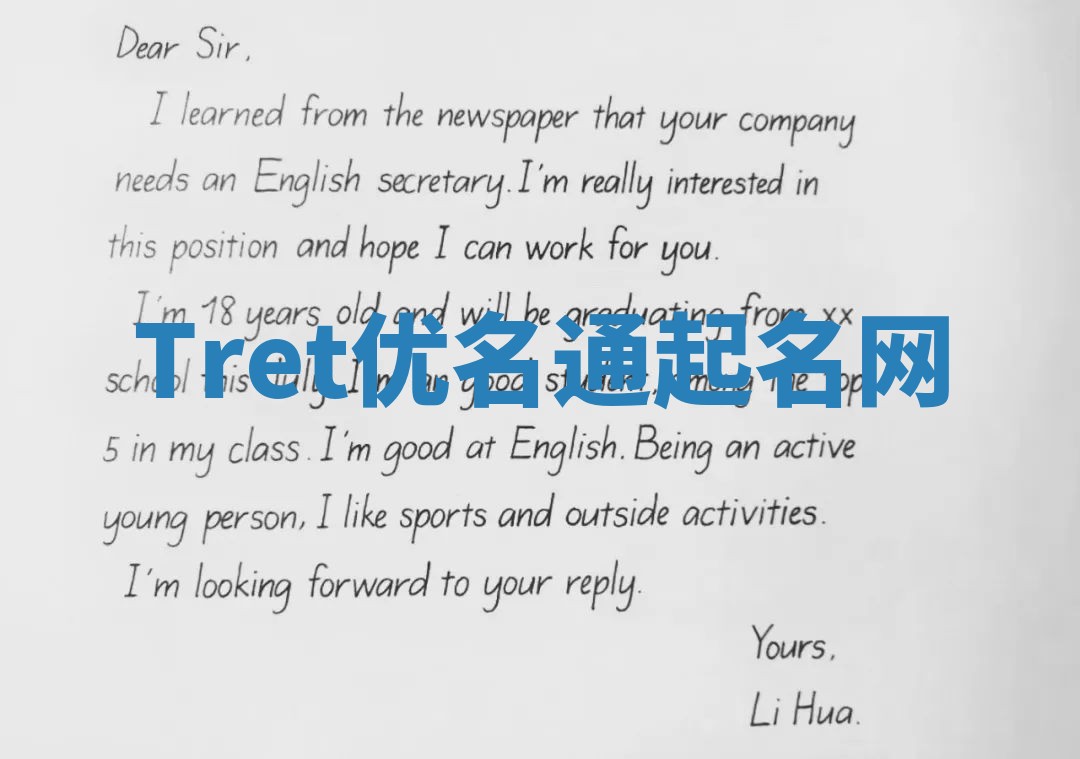 Dear Sir,
I learned from the newspaper that your company
needs an English secretary. I'm really interested in
this position and hope I can work for you.
I'm 18 years old and will be graduating from xx
Tret优名通起名网
school this July. I'm an good student, among the top
5 in my class. I'm good at English. Being an active
young person, I like sports and outside activities.
I'm looking forward to your reply.
Yours,
Li Hua.